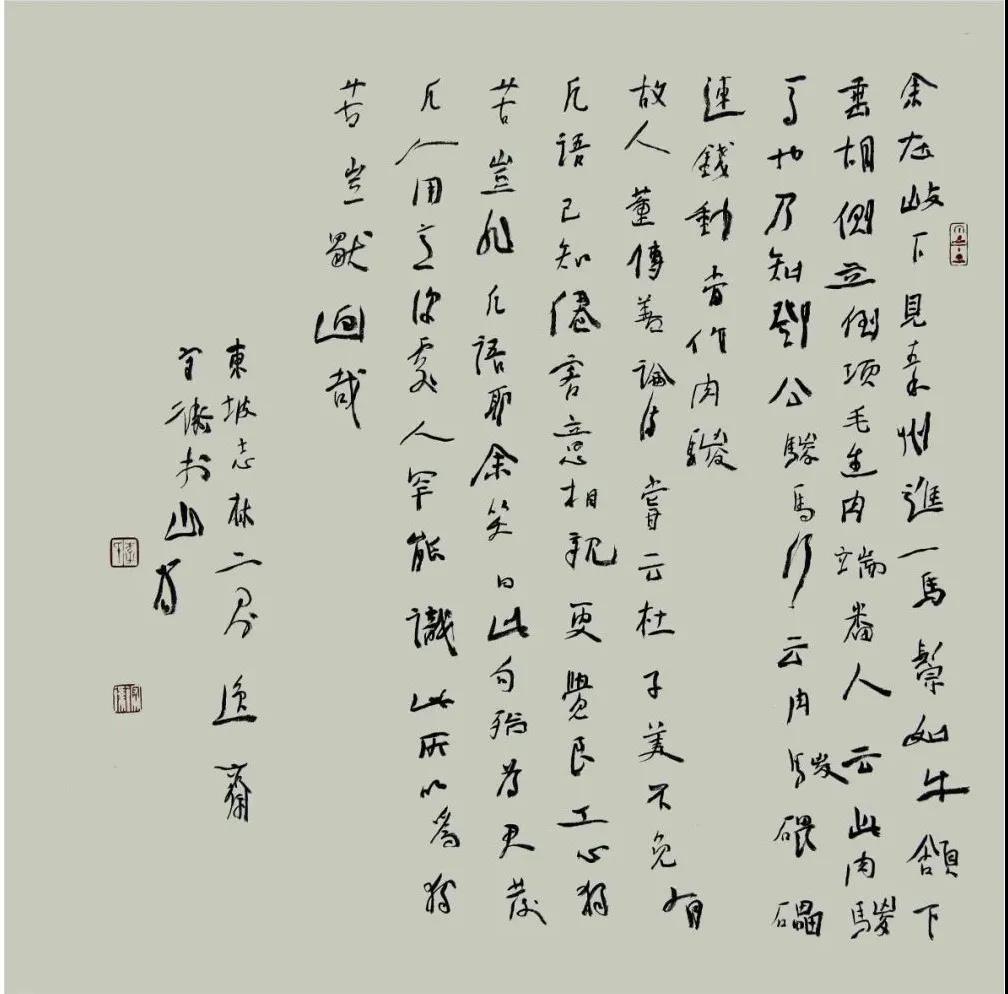 余在岐下見秦州進一馬鬃如牛頷下
垂胡側立倒項毛生肉端番人云此肉騣
馬也乃知鄧公驄馬行云肉駿碨礧
連錢動當作肉騣
故人董傳善論詩嘗云杜子美不免有
凡語已知僊客意相親更覺良工心獨
苦豈非凡語耶余笑曰此句殆為君發
凡人用意深處人罕能識此所以為獨
苦豈獨画哉
東坡志林二則逸齋
守書山房